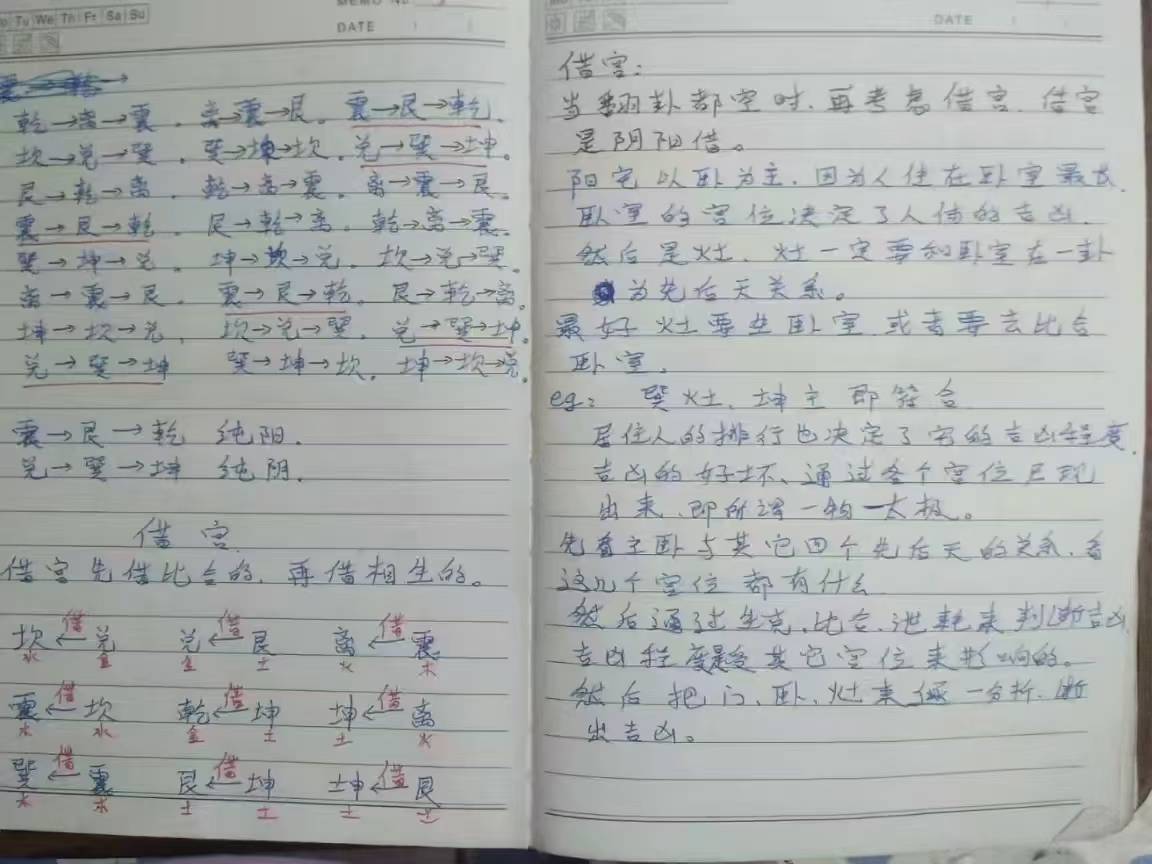 Tu We Th Fr Sa Su
MEMO No.
DATE
乾→离→震．离→震→艮。震→艮→乾.
坎→兑→巽．巽→坤→坎．兑→巽→坤。
艮→乾→离．乾→离→震．离→震→艮
震→艮→乾．艮→乾→离．乾→离→震。
巽→坤→兑．坤→坎→兑．坎→兑→巽。
离→震→艮．震→艮→乾．艮→乾→离。
坤→坎→兑．坎→兑→巽．兑→巽→坤。
兑→巽→坤 巽→坤→坎．坤→坎→兑。
震→艮→乾 纯阳.
兑→巽→坤 纯阴.
借宫
借宫先借比合的，再借相生的。
坎←借兑 兑←借艮 离←借震
水 金 金 土 火 木
震←借坎 乾←借坤 坤←借离
木 水 金 土 土 火
巽←借震 艮←借坤 坤←借艮
木 木 土 土 土 土
DATE
借宫：
当翻卦都空时．再考虑借宫．借宫
是阴阳借。
阳宅以卧为主．因为人住在卧室最长．
卧室的宫位决定了人体的吉凶．
然后是灶．灶一定要和卧室在一卦
为先后天关系。
最好灶要生卧室，或者要去比合
卧室．
eg： 巽灶．坤主即符合
居住人的排行也决定了宅的吉凶程度．
吉凶的好坏、通过各个宫位已现
出来．即所谓一物一太极。
先看主卧与其它四个先后天的关系．看
这几个宫位都有什么
然后通过生克．比合．泄耗来判断吉凶．
吉凶程度是受其它宫位来影响的。
然后把门、卧、灶来逐一分析．断
出吉凶。